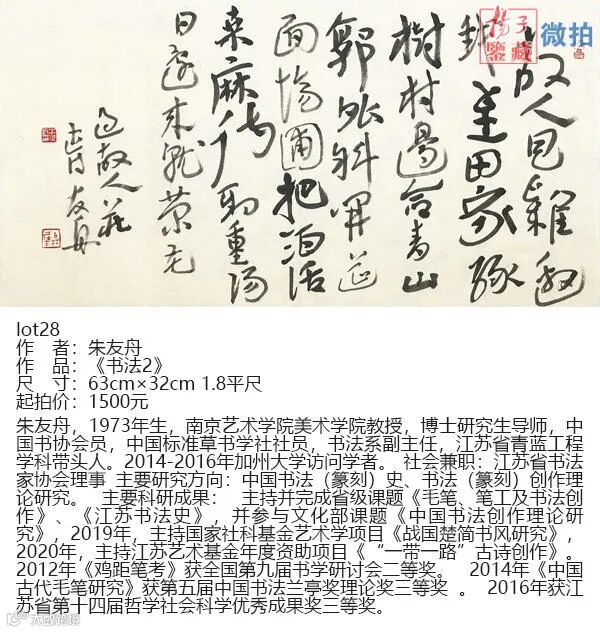 揚子
鑒藏
微拍
故人具雞黍
邀我至田家綠
樹村邊合青山
郭外斜開筵
面場圃把酒話
桑麻待到重陽
日還來就菊花
過故人莊
友舟
lot28
作 者：朱友舟
作 品：《书法2》
尺 寸：63cm×32cm 1.8平尺
起拍价：1500元
朱友舟，1973年生，南京艺术学院美术学院教授，博士研究生导师，中
国书协会员，中国标准草书学社社员，书法系副主任，江苏省青蓝工程
学科带头人。2014-2016年加州大学访问学者。 社会兼职：江苏省书法
家协会理事 主要研究方向：中国书法（篆刻）史、书法（篆刻）创作理
论研究。 主要科研成果： 主持并完成省级课题《毛笔、笔工及书法创
作》、《江苏书法史》，并参与文化部课题《中国书法创作理论研
究》，2019年，主持国家社科基金艺术学项目《战国楚简书风研究》，
2020年，主持江苏艺术基金年度资助项目《“一带一路”古诗创作》。
2012年《鸡距笔考》获全国第九届书学研讨会二等奖。 2014年《中国
古代毛笔研究》获第五届中国书法兰亭奖理论奖三等奖 。 2016年获江
苏省第十四届哲学社会科学优秀成果奖三等奖。